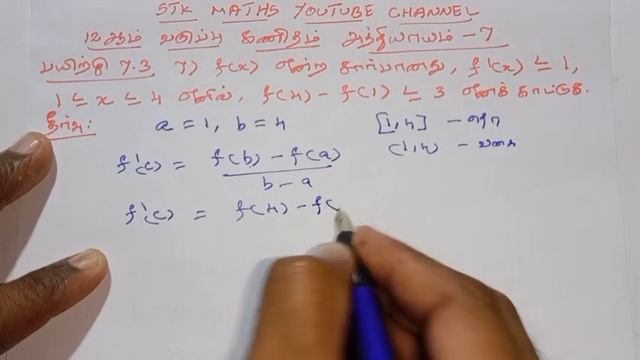 STK MATHS YOUTUBE CHANNEL
12 ஆம் வகுப்பு கணிதம் அத்தியாயம் - 7
பயிற்சி 7.3 7) f(x) என்ற சார்பானது, f'(x) ≤ 1,
1 ≤ x ≤ 4 எனில், f(4) - f(1) ≤ 3 எனக் காட்டுக.
தீர்வு: a = 1, b = 4 [1,4] - 
f'(c) = f(b) - f(a) / b - a (1,4) - 
f'(c) = f(4) - f(